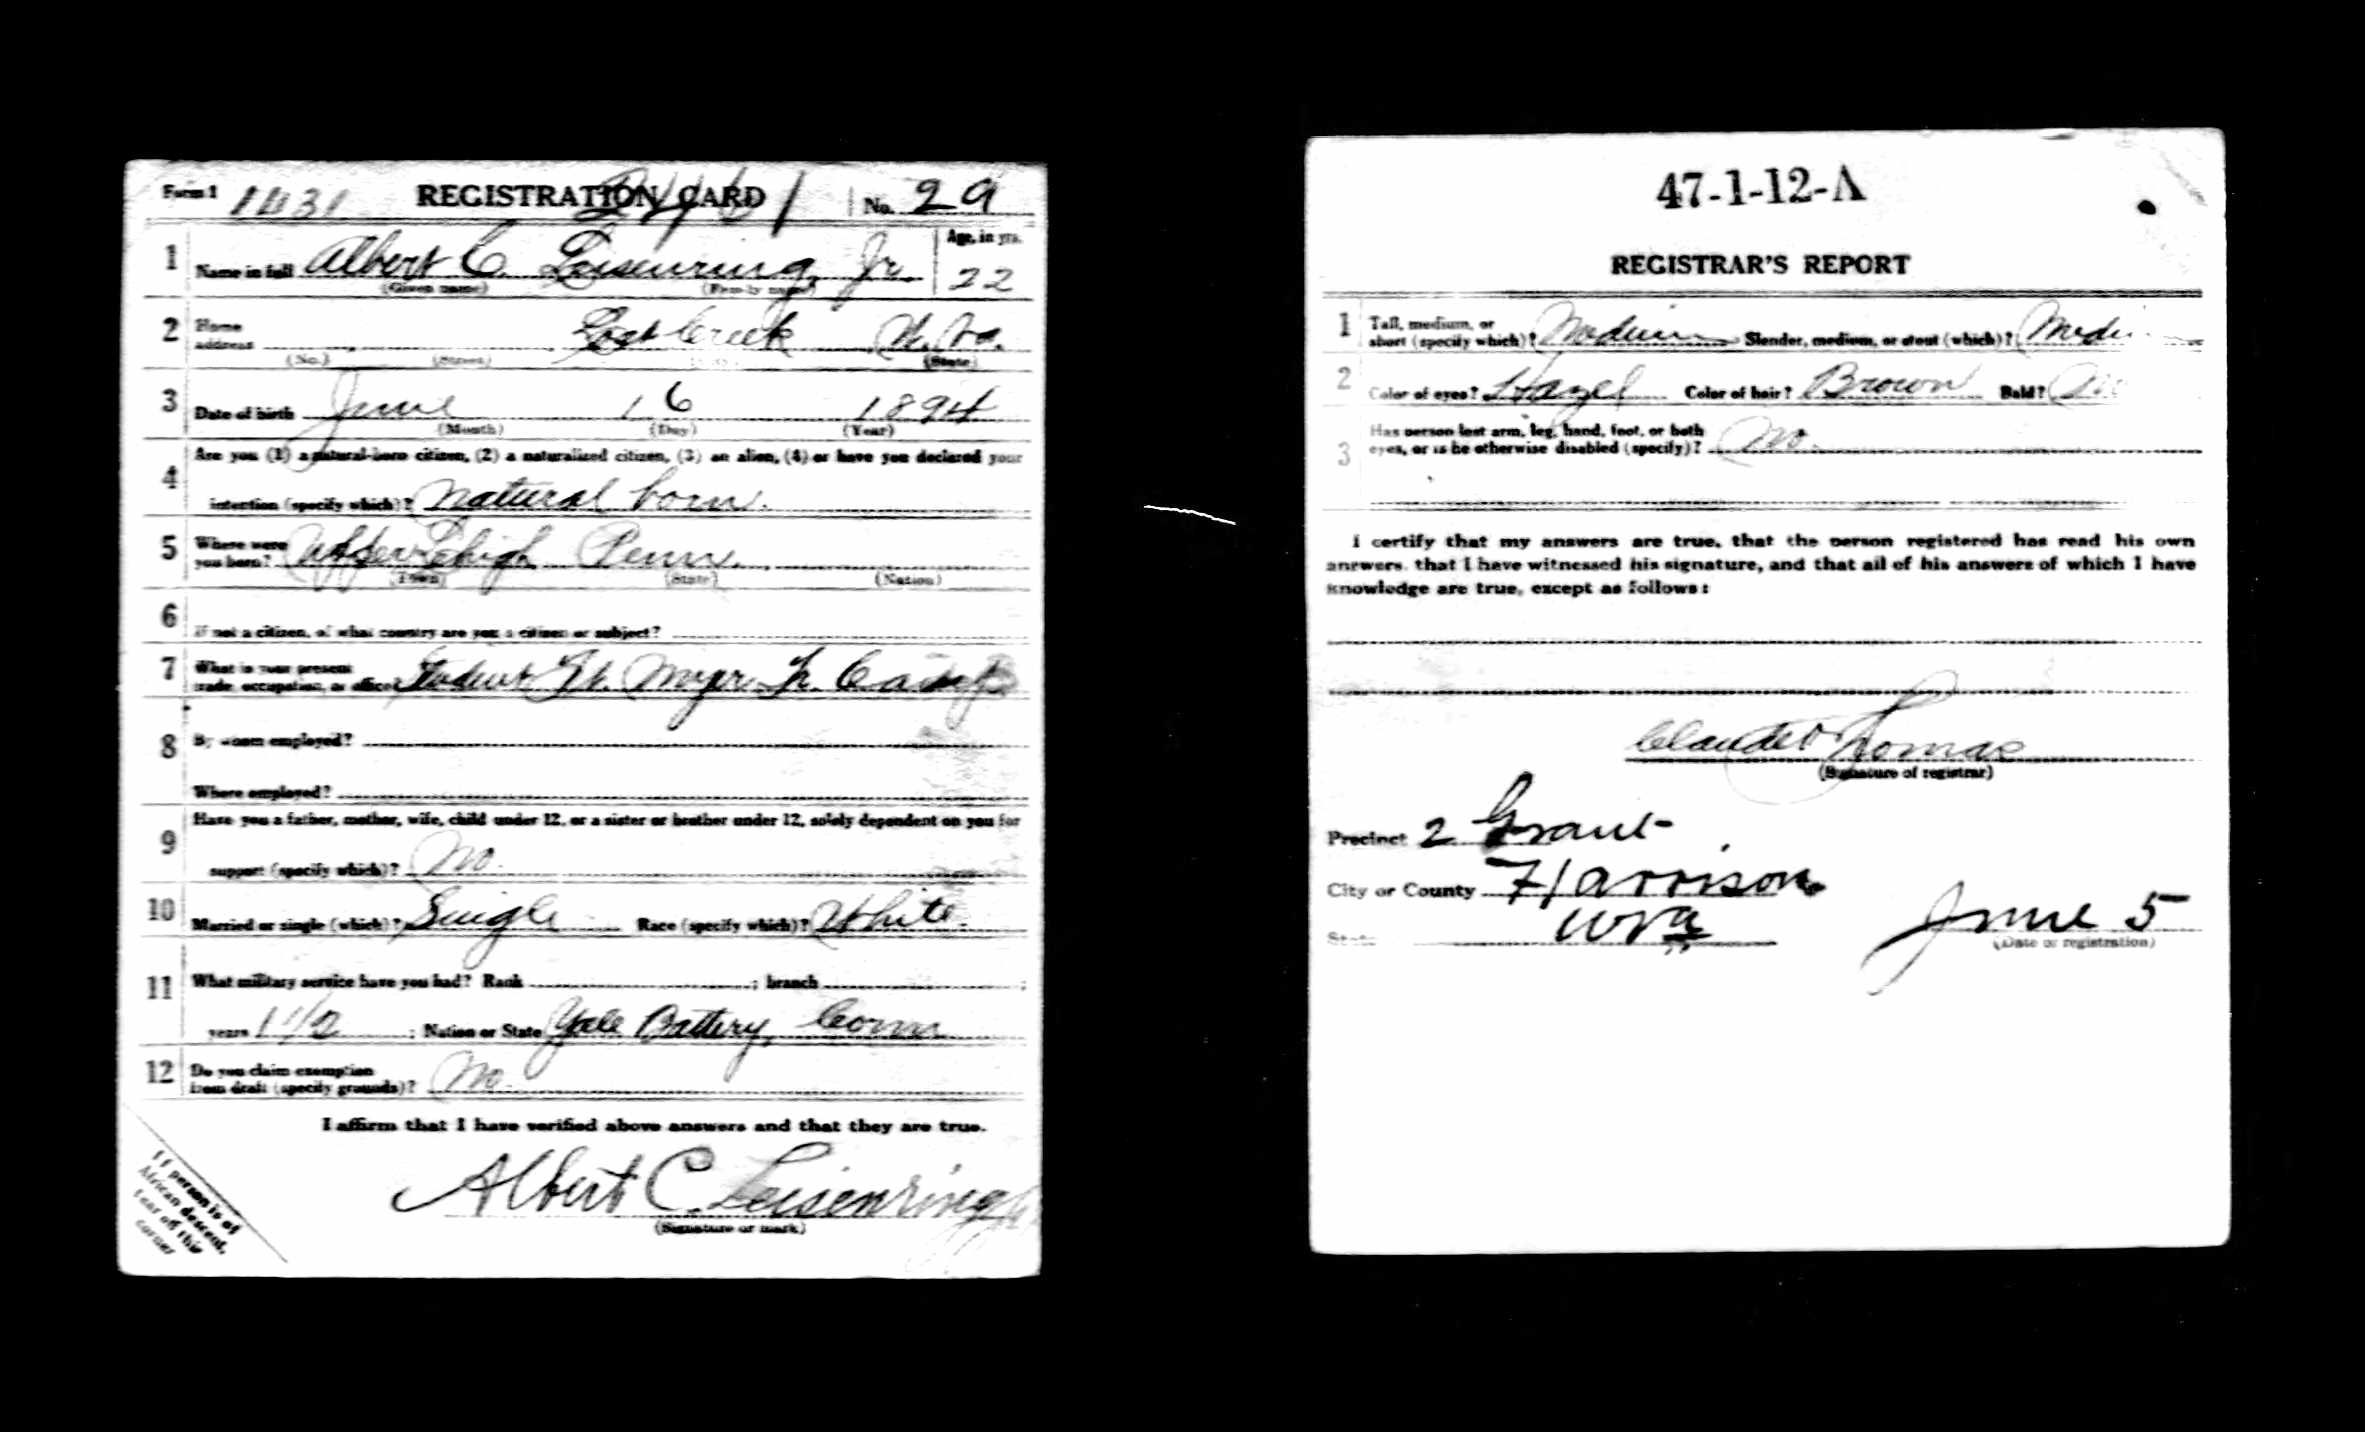 Form 1 1431 REGISTRATION CARD No. 29
1 Name in full Albert C. Leisenring, Jr. Age, in yrs. 22
(Given name) (Family name)
2 Home address Lost Creek W. Va.
(No.) (Street) (State)
3 Date of birth June 16 1894
(Month) (Day) (Year)
4 Are you (1) a natural-born citizen, (2) a naturalized citizen, (3) an alien, (4) or have you declared your
intention (specify which)? Natural born.
5 Where were you born? Upper Lehigh Penn.
(Town) (State) (Nation)
6 If not a citizen, of what country are you a citizen or subject?
7 What is your present
trade, occupation, or office? Student Ft. Myer Tr. Camp
8 By whom employed?
Where employed?
9 Have you a father, mother, wife, child under 12, or a sister or brother under 12, solely dependent on you for
support (specify which)? No.
10 Married or single (which)? Single Race (specify which)? White
11 What military service have you had? Rank ; branch ;
years 1 1/2 ; Nation or State Yale Battery, Conn
12 Do you claim exemption
from draft (specify grounds)? No.
I affirm that I have verified above answers and that they are true.
Albert C. Leisenring Jr
(Signature or mark)
If person is of
African descent,
tear off this
corner
47-1-12-A
REGISTRAR'S REPORT
1 Tall, medium, or
short (specify which)? Medium Slender, medium, or stout (which)? Medi
2 Color of eyes? Hazel Color of hair? Brown Bald? No
3 Has person lost arm, leg, hand, foot, or both
eyes, or is he otherwise disabled (specify)? No.
I certify that my answers are true, that the person registered has read his own
answers, that I have witnessed his signature, and that all of his answers of which I have
knowledge are true, except as follows:
Claude Thomas
(Signature of registrar)
Precinct 2 Grant
City or County Harrison
State WVa June 5
(Date of registration)